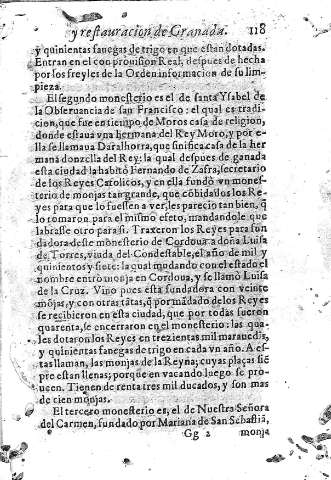 y restauracion de Granada. 118
y quinientas fanegas de trigo en que estan dotadas.
Entran en el con provision Real, despues de hecha
por los freyles de la Orden informacion de su lim-
pieza.
El segundo monesterio es el de santa Ysabel de
la Obseruancia de san Francisco: el qual es tradi-
cion, que fue en tiempo de Moros casa de religion,
donde estaua vna hermana del Rey Moro, y por e-
lla se llamaua Daralhorra, que sinifica casa de la her
mana donzella del Rey: la qual despues de ganada
esta ciudad la habitó Fernando de Zafra, secretario
de los Reyes Catolicos, y en ella fundò vn mones-
terio de monjas tan grande, que cõbidados los Re-
yes para que lo fuessen a ver, les parecio tan bien, q̃
lo tomaron para el mismo efeto, mandandole que
labrasse otro para si. Traxeron los Reyes para fun
dadora deste monesterio de Cordoua a doña Luisa
de Torres, viuda del Condestable, el año de mil y
quinientos y siete: la qual mudando con el estado el
nombre entrò monja en Cordoua, y se llamò Luisa
de la Cruz. Vino pues esta fundadora con veinte
mõjas, y con otras tãtas, q̃ por mãdado de los Reyes
se recibieron en esta ciudad, que por todas fueron
quarenta, se encerraron en el monesterio: las qua-
les dotaron los Reyes en trezientas mil marauedis,
y quinientas fanegas de trigo en cada vn año. A es-
tas llaman, las monjas de la Reyna; cuyas plaças siẽ
pre estan llenas; porque en vacando luego se pro-
ueen. Tienen de renta tres mil ducados, y son mas
de cien monjas.
El tercero monesterio es, el de Nuestra Señora
del Carmen, fundado por Mariana de San Sebastiã,
Gg 2 monja